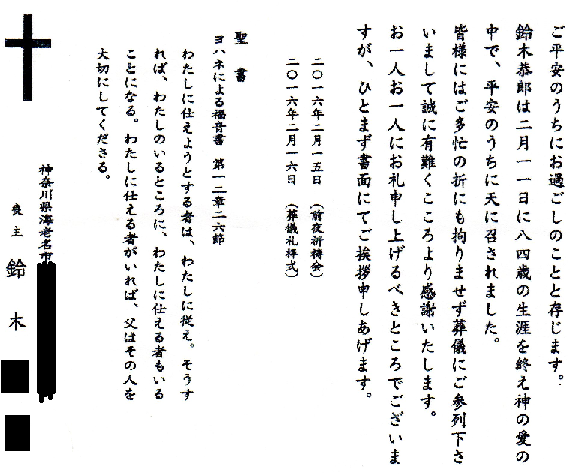 ご平安のうちにお過ごしのことと存じます。
鈴木恭郎は二月一一日に八四歳の生涯を終え神の愛の
中で、平安のうちに天に召されました。
皆様にはご多忙の折にも拘りませず葬儀にご参列下さ
いまして誠に有難くこころより感謝いたします。
お一人お一人にお礼申し上げるべきところでございま
すが、ひとまず書面にてご挨拶申しあげます。
二〇一六年二月一五日 (前夜祈祷会)
二〇一六年二月一六日 (葬儀礼拝式)
聖 書
ヨハネによる福音書 第一二章二六節
わたしに仕えようとする者は、わたしに従え。そうす
れば、わたしのいるところに、わたしに仕える者もいる
ことになる。わたしに仕える者がいれば、父はその人を
大切にしてくださる。
神奈川県海老名市
喪主 鈴木